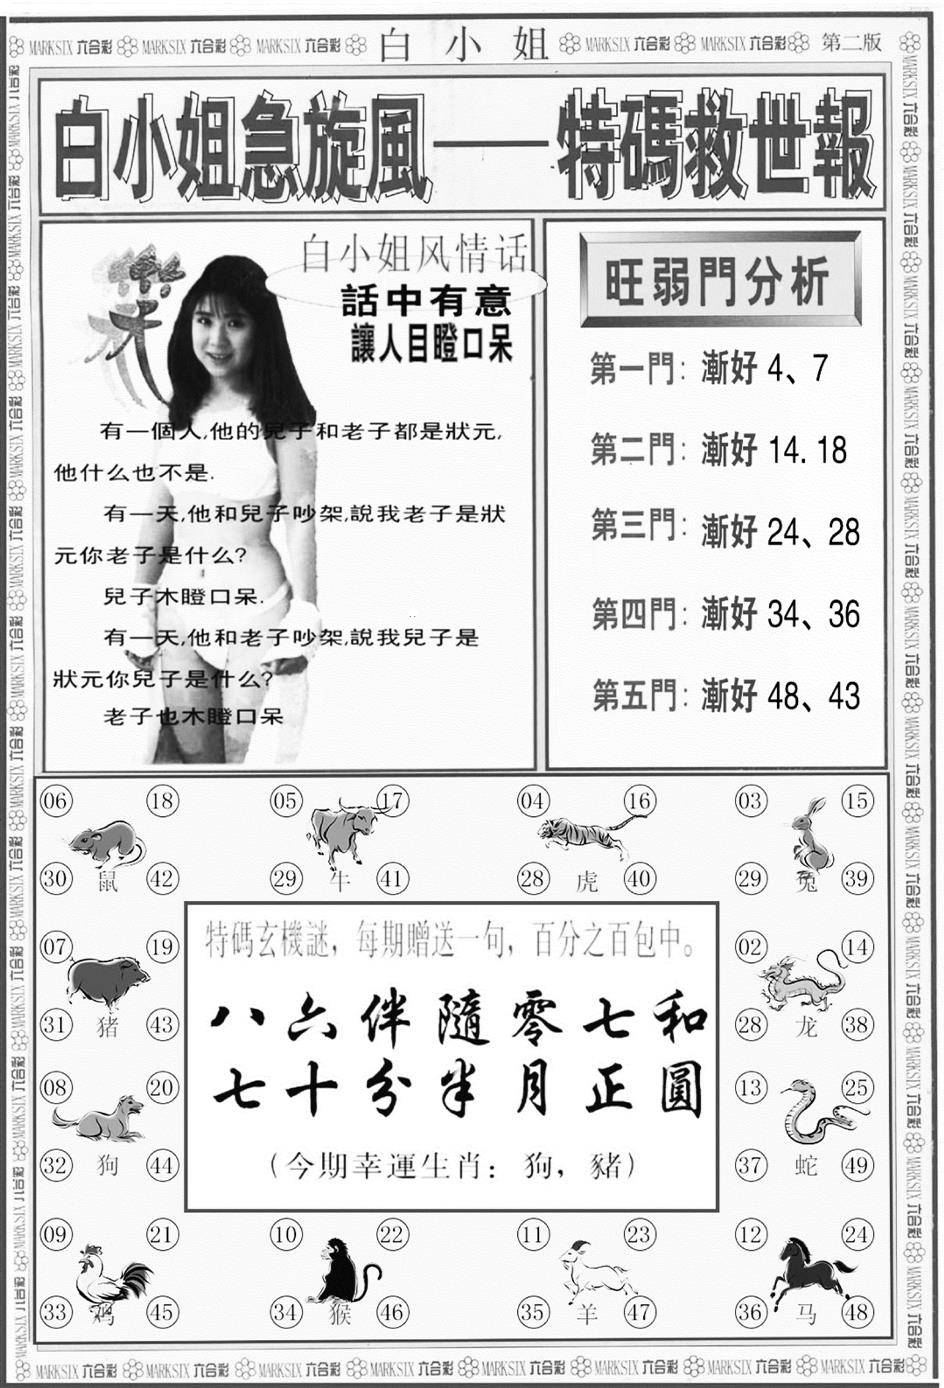 MARKSIX 六合彩 MARKSIX 六合彩 MARKSIX 六合彩 白小姐 MARKSIX 六合彩 MARKSIX 六合彩 第二版
白小姐急旋風——特碼救世報
樂
白小姐风情话
話中有意
讓人目瞪口呆
有一個人,他的兒子和老子都是狀元,
他什么也不是.
有一天,他和兒子吵架,說我老子是狀
元你老子是什么?
兒子木瞪口呆.
有一天,他和老子吵架,說我兒子是
狀元你兒子是什么?
老子也木瞪口呆
旺弱門分析
第一門: 漸好 4、7
第二門: 漸好 14. 18
第三門: 漸好 24、28
第四門: 漸好 34、36
第五門: 漸好 48、43
06 18 05 17 04 16 03 15
30 鼠 42 29 牛 41 28 虎 40 29 兔 39
07 19
31 猪 43
08 20
32 狗 44
特碼玄機謎，每期贈送一句，百分之百包中。
八六伴隨零七和
七十分半月正圓
(今期幸運生肖: 狗, 豬)
02 14
28 龙 38
13 25
37 蛇 49
09 21 10 22 11 23 12 24
33 鸡 45 34 猴 46 35 羊 47 36 马 48
MARKSIX 六合彩 MARKSIX 六合彩 MARKSIX 六合彩 MARKSIX 六合彩 MARKSIX 六合彩 MARKSIX 六合彩 MARKSIX 六合彩 MARKSIX 六合彩